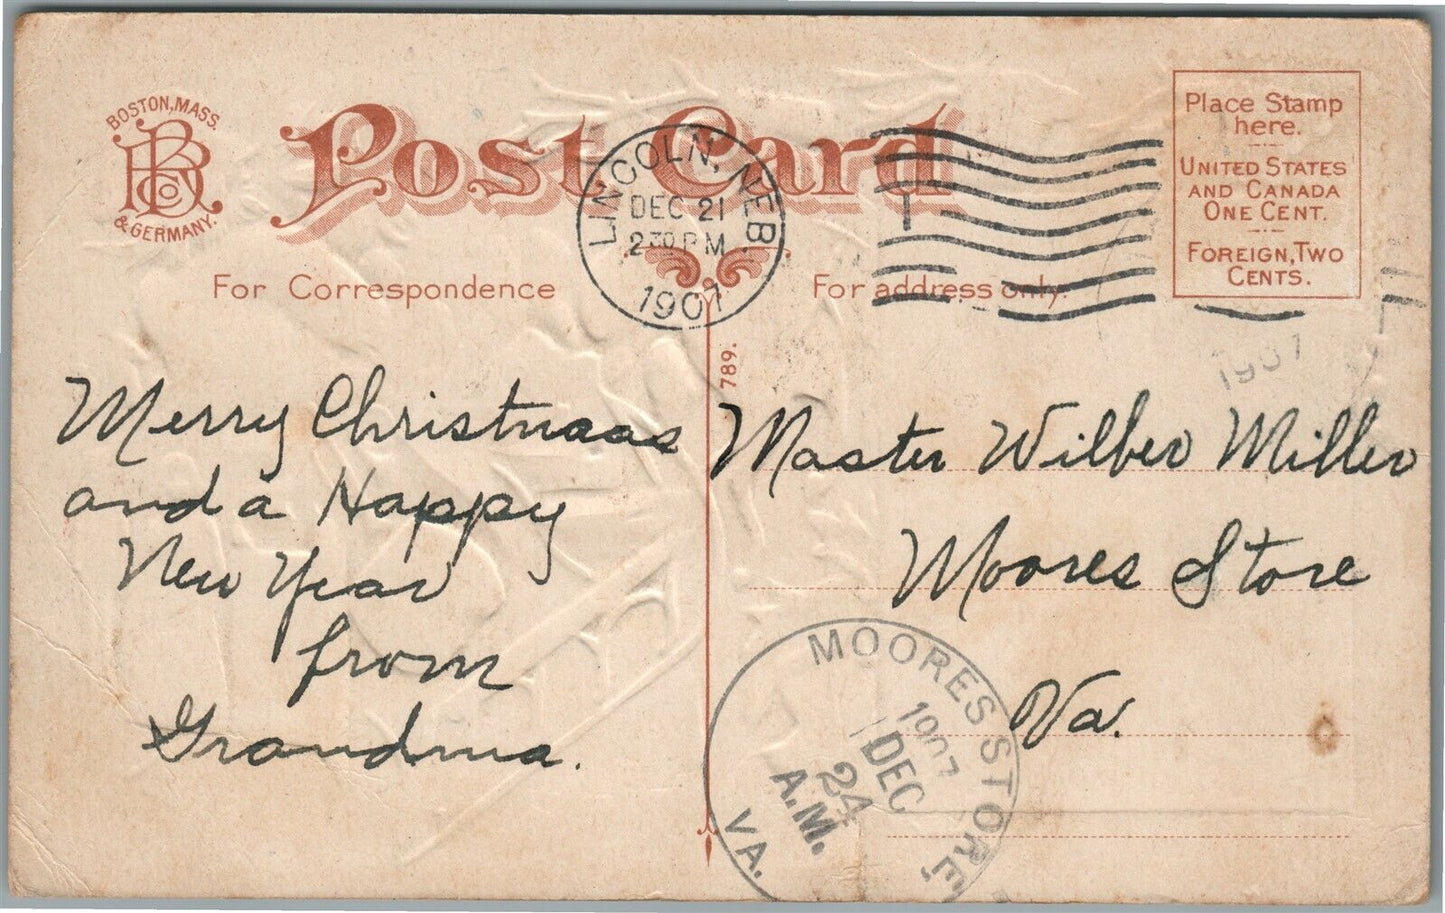 BOSTON, MASS.
BRCo
& GERMANY.
Post Card
LINCOLN, NEB
DEC 21
2 30 PM
1907
Place Stamp
here.
UNITED STATES
AND CANADA
ONE CENT.
FOREIGN, TWO
CENTS.
For Correspondence
For address only.
789.
1907
Merry Christmaas
and a Happy
New Year
from
Grandma.
Master Wilber Miller
Moores Store
Va.
MOORES STORE
1907
DEC
24
A.M.
VA.